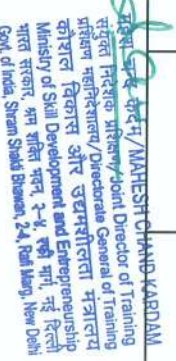 महेश चन्द कर्दम/MAHESH CHAND KARDAM
संयुक्त निदेशक प्रशिक्षण/Joint Director of Training
प्रशिक्षण महानिदेशालय/Directorate General of Training
कौशल विकास और उद्यमशीलता मंत्रालय
Ministry of Skill Development and Entrepreneurship
भारत सरकार, श्रम शक्ति भवन, 2-4, रफी मार्ग, नई दिल्ली
Govt. of India, Shram Shakti Bhawan, 2-4, Rafi Marg, New Delhi